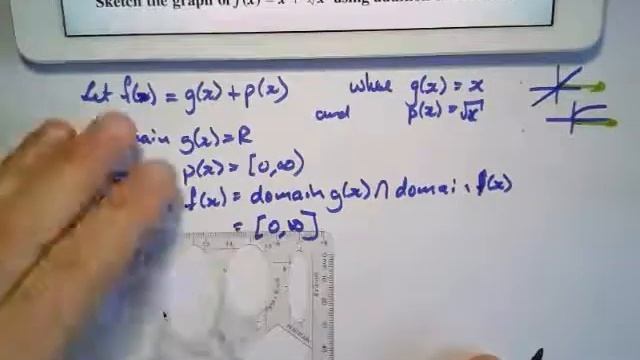 Sketch the graph of f(x) = x + √x using addition
Let f(x) = g(x) + p(x) where g(x) = x
and p(x) = √x
main g(x) = R
p(x) = [0,∞)
f(x) = domain g(x) ∩ domain p(x)
= [0,∞]